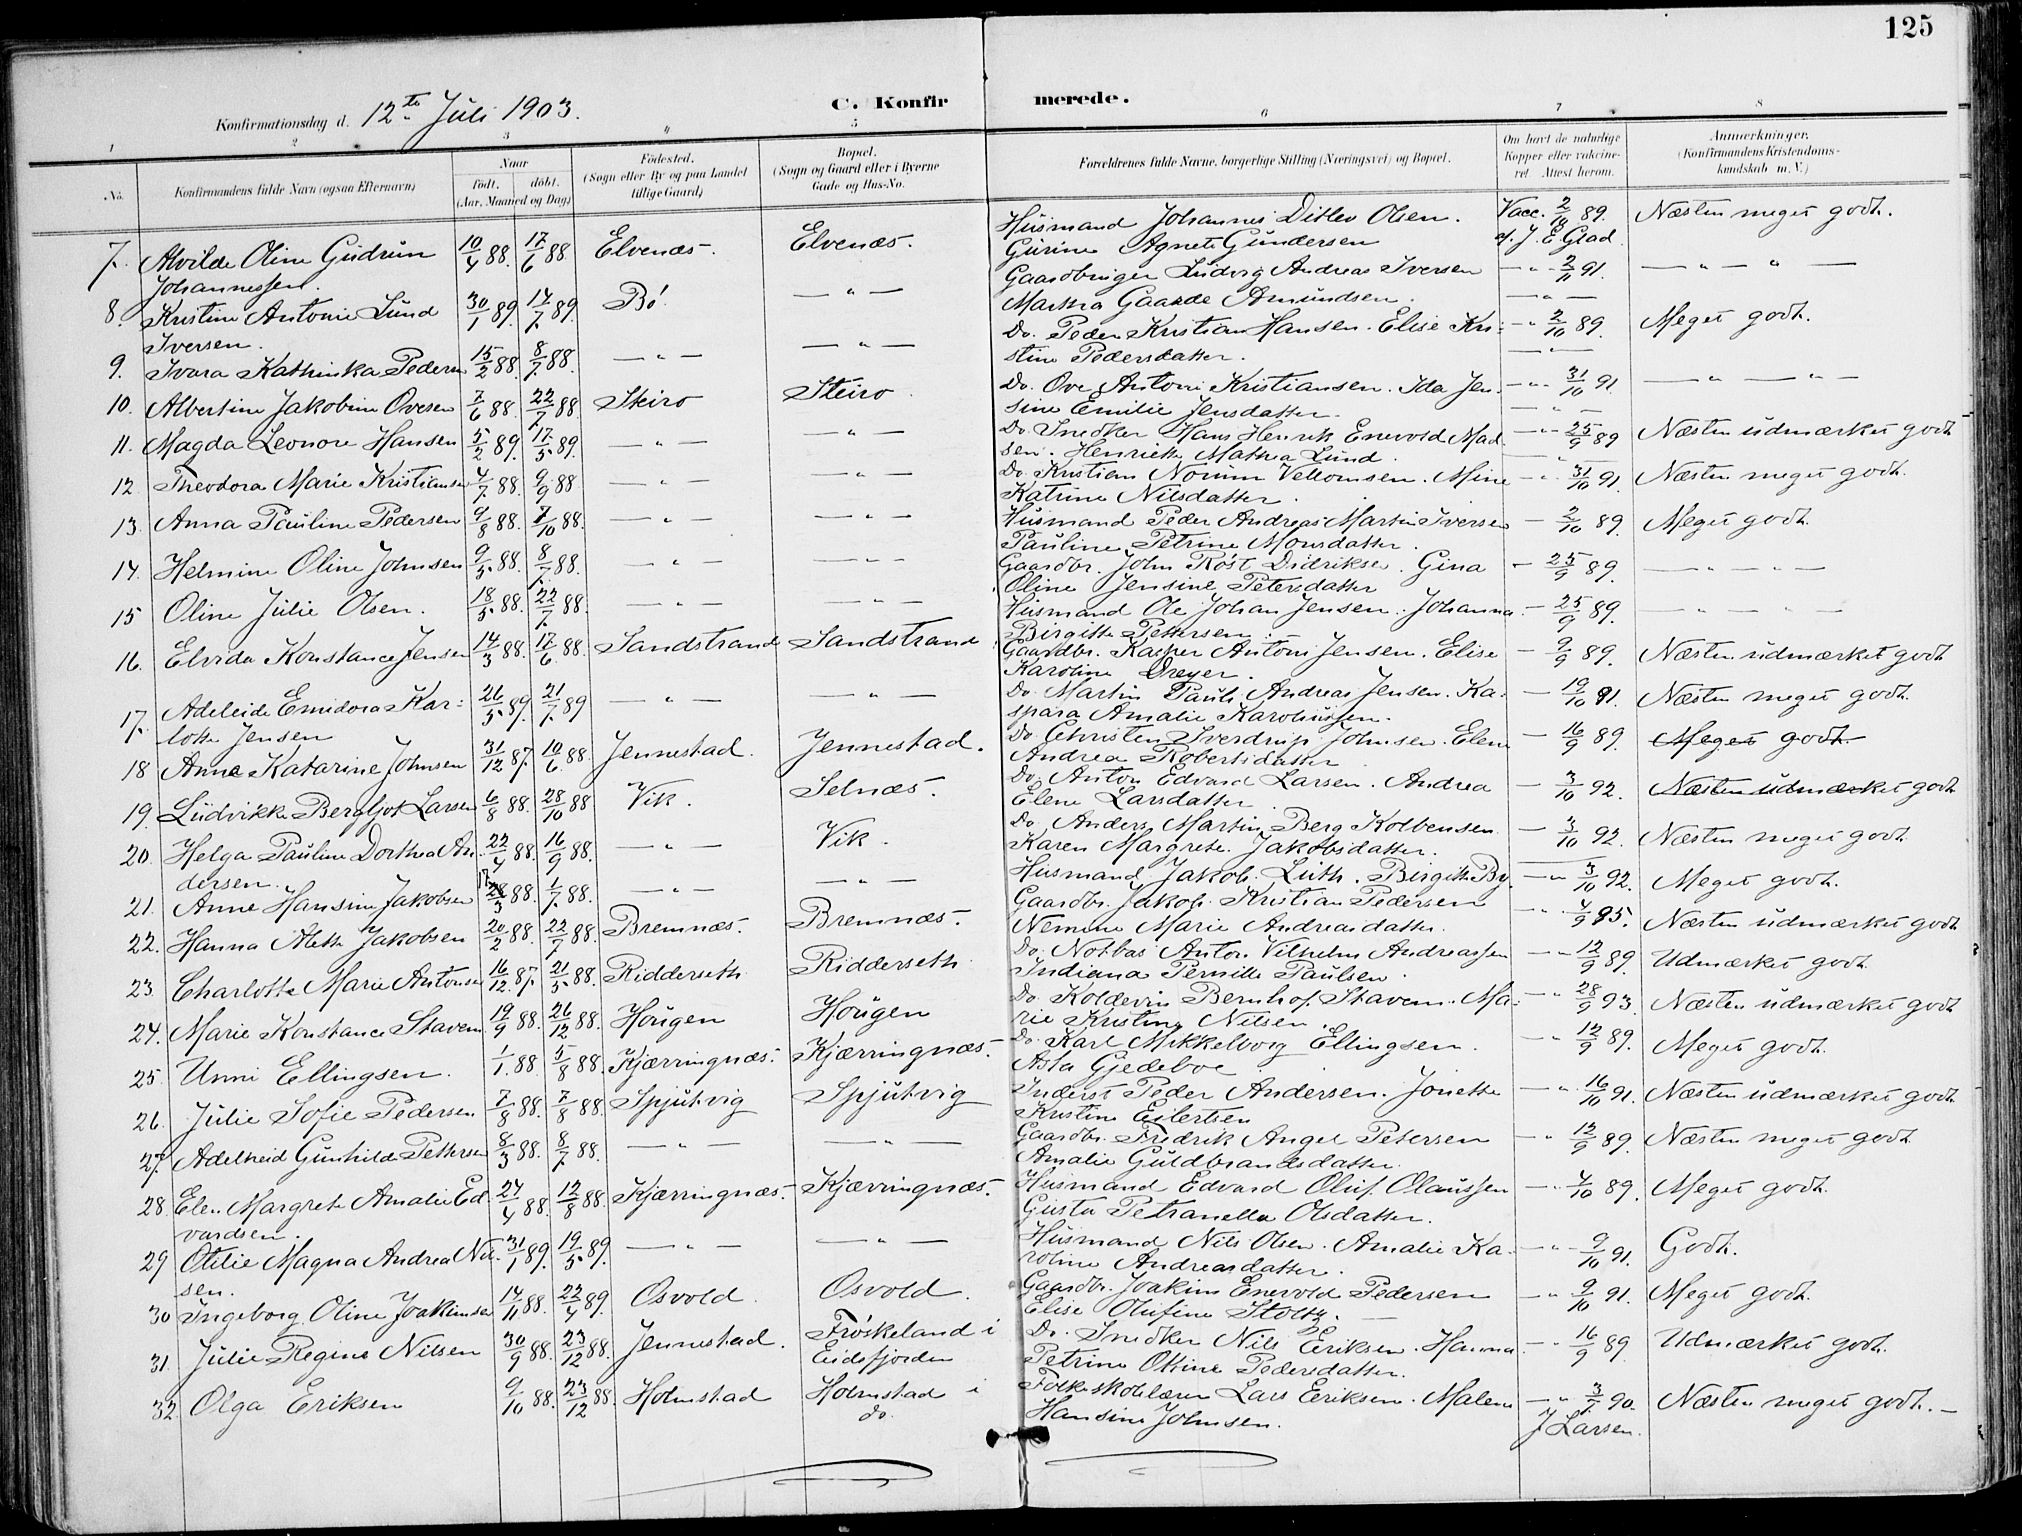 125
Konfirmationsdag d. 12te Juli 1903.
C. Konfirmerede.
1 2 3 4 5 6 7 8
No. Konfirmandens fulde Navn (ogsaa Efternavn) Naar født. døbt. (Aar, Maaned og Dag) Fødested. (Sogn eller By og paa Landet tillige Gaard) Bopæl. (Sogn og Gaard eller i Byerne Gade og Hus-No. Forældrenes fulde Navne, borgerlige Stilling (Næringsvei) og Bopæl. Om havt de naturlige Kopper eller vakcineret. Attest herom. Anmærkninger. (Konfirmandens Kristendomskundskab m. V.)
7. Alvilde Oline Gudrun 10/4 88. 17/6 88 Elvenæs. Elvenæs. Husmand Johannes Ditlev Olsen. Vacc. 2/10 89. Næsten meget godt.
Johannessen. Gurine Agnete Gundersen af J. E Glad
8. Kristine Antonie Lund 30/1 89. 14/7 89. Bø — " — Gaardbruger Ludvig Andreas Iversen — " 2/11 91. — " — " —
Iversen. Martha Gaarde Amundsen. — " —
9. Ivara Kathinka Pedersen 15/2 88. 8/7 88. — " — — " — Do. Peder Kristian Hansen. Elise Kri- — " 2/10 89. Meget godt.
stine Pedersdatter. — " —
10. Albertine Jakobine Ovesen 7/6 88. 22/7 88 Steiro Steiro. Do. Ove Antoni Kristiansen. Ida Jen- — " 31/10 91 — " — " —
sine Emilie Jensdatter. — " —
11. Magda Leonore Hansen 5/2 89. 17/5 89. — " — — " — Do. Snedker Hans Henrik Enevold Mad- — " 25/9 89 Næsten udmærket godt
sen. Henriette Mathea Lund.
12 Theodora Marie Kristiansen 4/7 88. 9/9 88 — " — — " — Do. Kristian Norum Vellomsen. Mine — " 31/10 91. Næsten meget godt.
Katrine Nilsdatter.
13. Anna Pauline Pedersen 9/8 88. 7/10 88. — " — — " — Husmand Peder Andreas Martin Iversen — 2/10 89. Meget godt.
Pauline Petrine Monsdatter.
14. Helmine Oline Johnsen 9/5 88. 8/7 88. — " — — " — Gaardbr. John Røst Didriksen. Gina — 25/9 89. — " — " —
Oline Jensine Petersdatter
15 Oline Julie Olsen. 18/5 88. 22/7 88. — " — — " — Husmand Ole Johan Jensen. Johanna — 25/9 89. — " — " —
Birgitte Pettersen.
16. Elvida Konstance Jensen 14/3 88. 17/6 88. Sandstrand Sandstrand Gaardbr. Kasper Antoni Jensen. Elise — 9/9 89. Næsten udmærket godt
Karoline Dreyer.
17. Adeleide Emidora Kar- 26/5 89. 21/7 89 — " — — " — Do. Martin Pauli Andreas Jensen. Ka- — 19/10 91. Næsten meget godt.
lotte Jensen spara Amalie Karoliussen.
18 Anna Katarine Johnsen 31/12 87. 10/6 88. Jennestad. Jennestad. Do. Christen Sverdrup Johnsen. Elen — 16/9 89. Meget godt.
Andrea Robertsdatter
19. Ludvikke Bergljot Larsen 6/8 88. 28/10 88 Vik. Selnæs. Do. Anton Edvard Larsen. Andrea — 3/10 92. Næsten udmærket godt
Elene Larsdatter
20. Helga Pauline Dorthea An- 22/4 88. 16/9 88. — " — Vik. Do. Anders Martin Berg Kolbensen — 3/10 92. Næsten meget godt.
dersen. Karen Margrete Jakobsdatter.
21. Anne Hansine Jakobsen 88. 1/7 88. — " — — " — Husmand Jakob Luth. Birgitte By. — " 3/10 92. Meget godt.
22. Hanna Alette Jakobsen 20/2 88. 22/7 88. Bremnæs. Bremnæs. Gaardbr. Jakob Kristian Pedersen — " 4/9 95. Næsten udmærket godt
Nemine Marie Andreasdatter.
23. Charlotte Marie Antonsen 16/12 87. 21/5 88. Ridderseth Ridderseth Do. Notbas Anton Vilhelm Andreassen — " 12/9 89. Udmærket godt.
Indiana Pernille Paulsen.
24. Marie Konstance Stavem 19/9 88. 26/12 88. Hougen Hougen Do. Koldevin Bernhof Stavem. Ma- — " 28/9 93. Næsten udmærket godt
rie Kristine Nilsen.
25. Unni Ellingsen. 1/1 88. 5/8 88. Kjærringnæs. Kjærringnæs. Do. Karl Mikkelborg Ellingsen. — " 12/9 89. Meget godt.
Asta Gjedeboe
26. Julie Sofie Pedersen 7/8 88. 7/8 88. Spjutvig Spjutvig Inderst Peder Andersen. Jonette — " 16/10 91. Næsten udmærket godt.
Kristine Eilertsen
27. Adelheid Gunhilda Pettersen 8/3 88. 8/7 88. — " — — " — Gaardbr. Fredrik Angel Petersen — " 12/9 89. Næsten meget godt
Amalie Guldbrandsdatter.
28. Elen Margrete Amalie Ed- 24/4 88. 12/8 88. Kjærringnæs. Kjærringnæs. Husmand Edvard Oluf Olaussen — " 4/10 89. Meget godt.
vardsen. Gusta Petranella Olsdatter.
29 Otilie Magna Andrea Nil- 31/1 89. 19/5 89. — " — — " — Husmand Nils Olsen. Amalie Ka- — " 9/10 91. Godt.
sen. roline Andreasdatter.
30 Ingeborg Oline Joakimsen 14/11 88. 22/4 89. Osvold Osvold. Gaardbr. Joakim Enevold Pedersen — " 9/10 91. Meget godt.
Elise Olufine Stoltz.
31. Julie Regine Nilsen 30/9 88. 23/12 88. Jennestad. Frøskeland i Do. Snedker Nils Eriksen. Hanna — " 16/9 89 Udmærket godt.
Eidsfjorden Petrine Ottine Pedersdatter.
32 Olga Eriksen 9/10 88. 23/12 88. Holmstad Holmstad i Folkeskolelærer Lars Eriksen. Malene — " 3/7 90. Næsten meget godt. —
do. Hansine Johnsen. J Larsen.